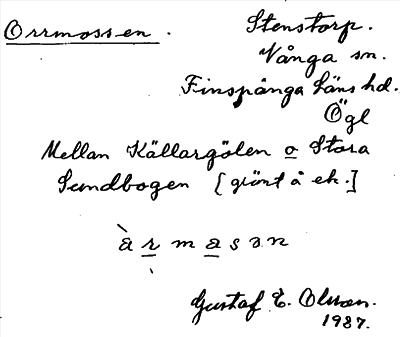 Orrmossen.
Stenstorp.
Vånga sn.
Finspånga läns hd.
Ögl
Mellan Källargölen o Stora
Sundbogen [grönt å ek.]
àrmasɔn
Gustaf E. Olsson.
1937.